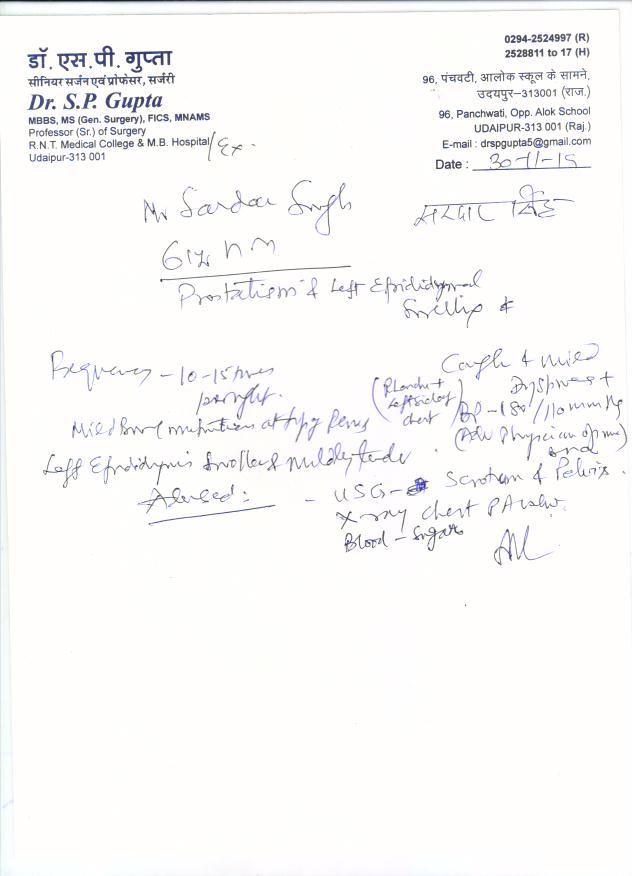 डॉ. एस.पी. गुप्ता
सीनियर सर्जन एवं प्रोफेसर, सर्जरी
Dr. S.P. Gupta
MBBS, MS (Gen. Surgery), FICS, MNAMS
Professor (Sr.) of Surgery
R.N.T. Medical College & M.B. Hospital/Ex.
Udaipur-313 001
0294-2524997 (R)
2528811 to 17 (H)
96, पंचवटी, आलोक स्कूल के सामने,
उदयपुर–313001 (राज.)
96, Panchwati, Opp. Alok School
UDAIPUR-313 001 (Raj.)
E-mail : drspgupta5@gmail.com
Date : 30-11-15
Mr Sardar Singh
सरदार सिंह
Prostatism & Left Epididymal
Swelling
Frequency - 10-15 times
per night.
Mild Burning at tip of Penis
Left Epididymis Swollen & Mildly tender
Cough + Mild
Dyspnoea +
(Rhonchi +
Left side of
chest)
BP - 180/110 mm Hg
(Adv Physician opinion)
Advised :
- USG - Scrotum & Pelvis.
X-ray Chest PA view.
Blood - Sugar